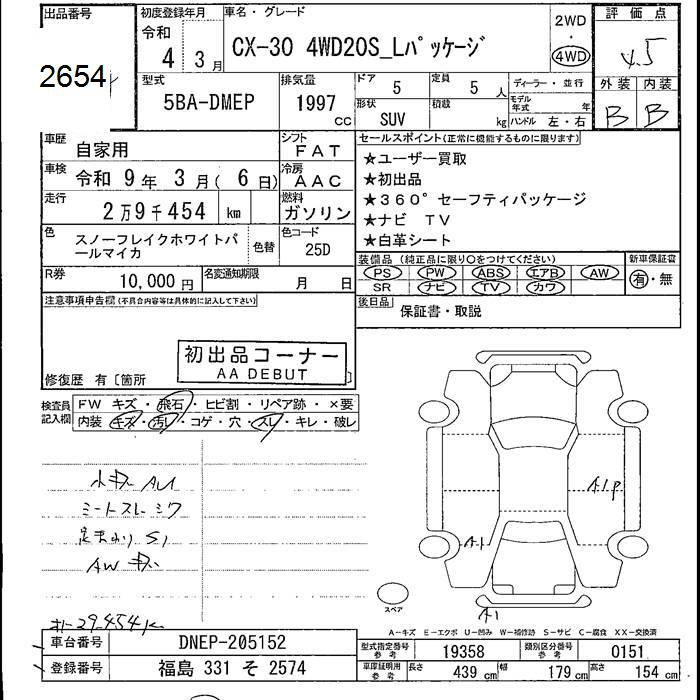 出品番号
2654
初度登録年月
令和
4 3月
車名・グレード
CX-30 4WD20S_Lパッケージ
2WD
・
4WD
評価点
4.5
外装 内装
B B
型式
5BA-DMEP
排気量
1997
CC
ドア
5
定員
5人
形状
SUV
積載
kg
ディーラー・並行
モデル年式 年
ハンドル 左・右
車歴
自家用
シフト
FAT
車検
令和 9年 3月( 6日)
冷房
AAC
走行
2万9千454 km
燃料
ガソリン
色
スノーフレイクホワイトパールマイカ
色替
色コード
25D
R券
10,000円
名変通知期限
月 日
セールスポイント(正常に機能するものに限ります)
★ユーザー買取
★初出品
★360°セーフティパッケージ
★ナビ TV
★白革シート
装備品(純正品に限り○をつけてください)
PS PW ABS エアB AW
SR ナビ TV カワ
新車保証書
有・無
後日品
保証書・取説
注意事項申告欄(不具合内容等は具体的に記入して下さい)
初出品コーナー
AA DEBUT
修復歴 有〔箇所 〕
検査員記入欄
FW キズ・飛石・ヒビ割・リペア跡・×要
内装 キズ・汚レ・コゲ・穴・スレ・キレ・破レ
シートスレ シワ
足まわり S1
AW キズ
29.454K
A1P
A1
A1
スペア
A-キズ E-エクボ U-凹み W-補修跡 S-サビ C-腐食 XX-交換済
車台番号
DNEP-205152
登録番号
福島 331 そ 2574
型式指定番号
参考
19358
類別区分番号
参考
0151
車庫証明用
参考
長さ 439 cm 幅 179 cm 高さ 154 cm